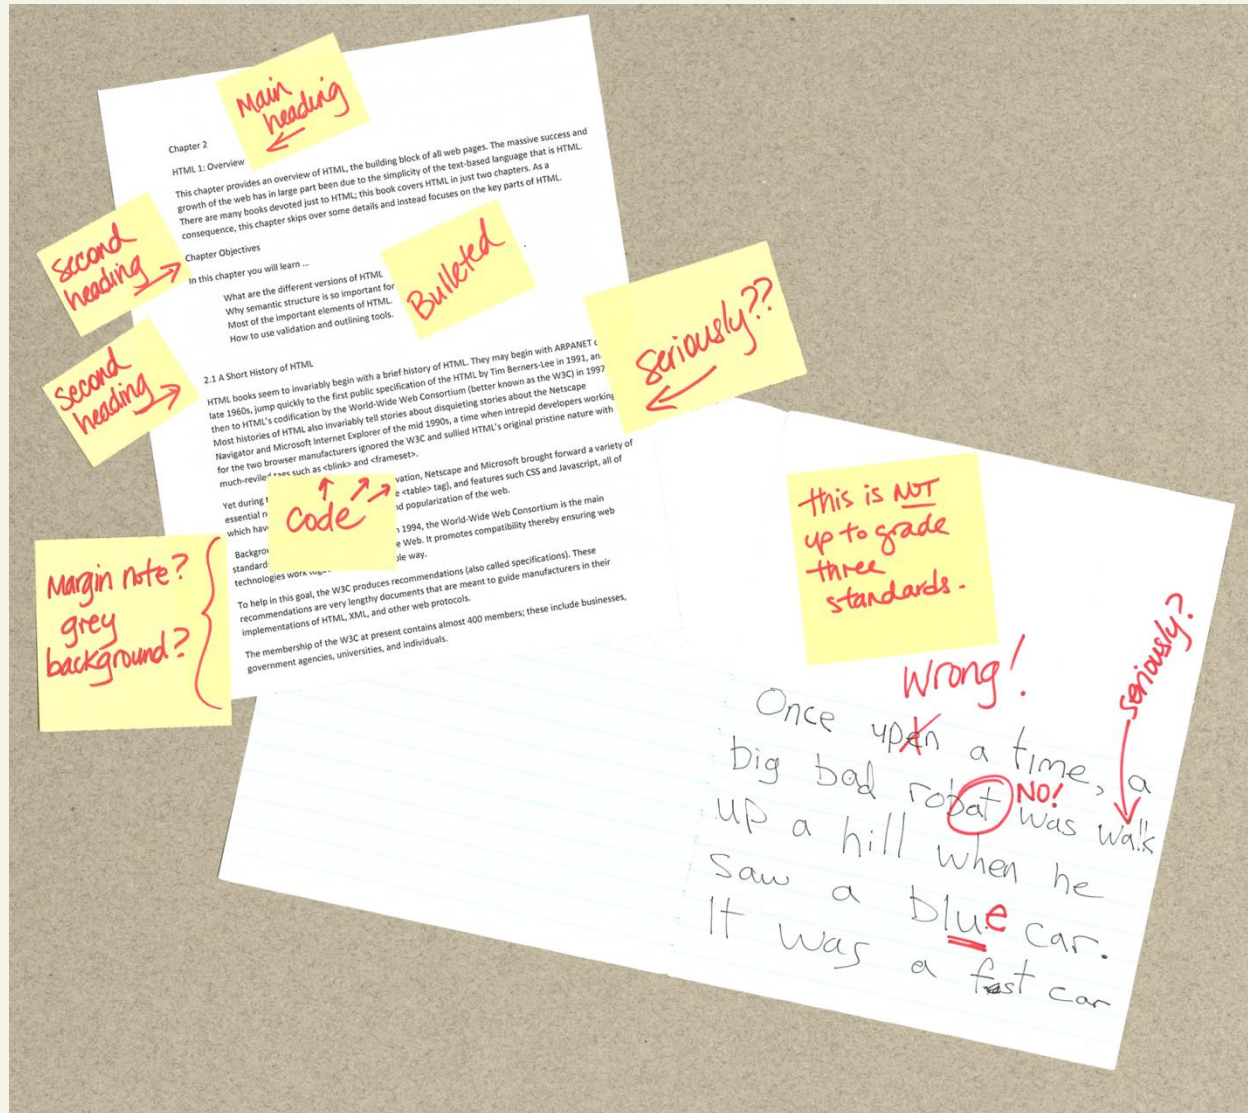 Main
heading
Chapter 2
HTML 1: Overview
This chapter provides an overview of HTML, the building block of all web pages. The massive success and
growth of the web has in large part been due to the simplicity of the text-based language that is HTML.
There are many books devoted just to HTML; this book covers HTML in just two chapters. As a
consequence, this chapter skips over some details and instead focuses on the key parts of HTML.
second
heading
Chapter Objectives
In this chapter you will learn ...
What are the different versions of HTML
Why semantic structure is so important for
Most of the important elements of HTML.
How to use validation and outlining tools.
Bulleted
second
heading
2.1 A Short History of HTML
HTML books seem to invariably begin with a brief history of HTML. They may begin with ARPANET
late 1960s, jump quickly to the first public specification of the HTML by Tim Berners-Lee in 1991, an
then to HTML's codification by the World-Wide Web Consortium (better known as the W3C) in 1997
Most histories of HTML also invariably tell stories about disquieting stories about the Netscape
Navigator and Microsoft Internet Explorer of the mid 1990s, a time when intrepid developers working
for the two browser manufacturers ignored the W3C and sullied HTML's original pristine nature with
much-reviled tags such as <blink> and <frameset>.
seriously??
Yet during vation, Netscape and Microsoft brought forward a variety of
essential n e <table> tag), and features such CSS and Javascript, all of
which hav d popularization of the web.
code
Backgrou 1994, the World-Wide Web Consortium is the main
standard e Web. It promotes compatibility thereby ensuring web
technologies work toge ble way.
To help in this goal, the W3C produces recommendations (also called specifications). These
recommendations are very lengthy documents that are meant to guide manufacturers in their
implementations of HTML, XML, and other web protocols.
The membership of the W3C at present contains almost 400 members; these include businesses,
government agencies, universities, and individuals.
Margin note?
grey
background?
this is NOT
up to grade
three
standards.
Wrong!
seriously?
Once upen a time, a
big bad robat was walk
NO!
up a hill when he
saw a blue car.
It was a fast car